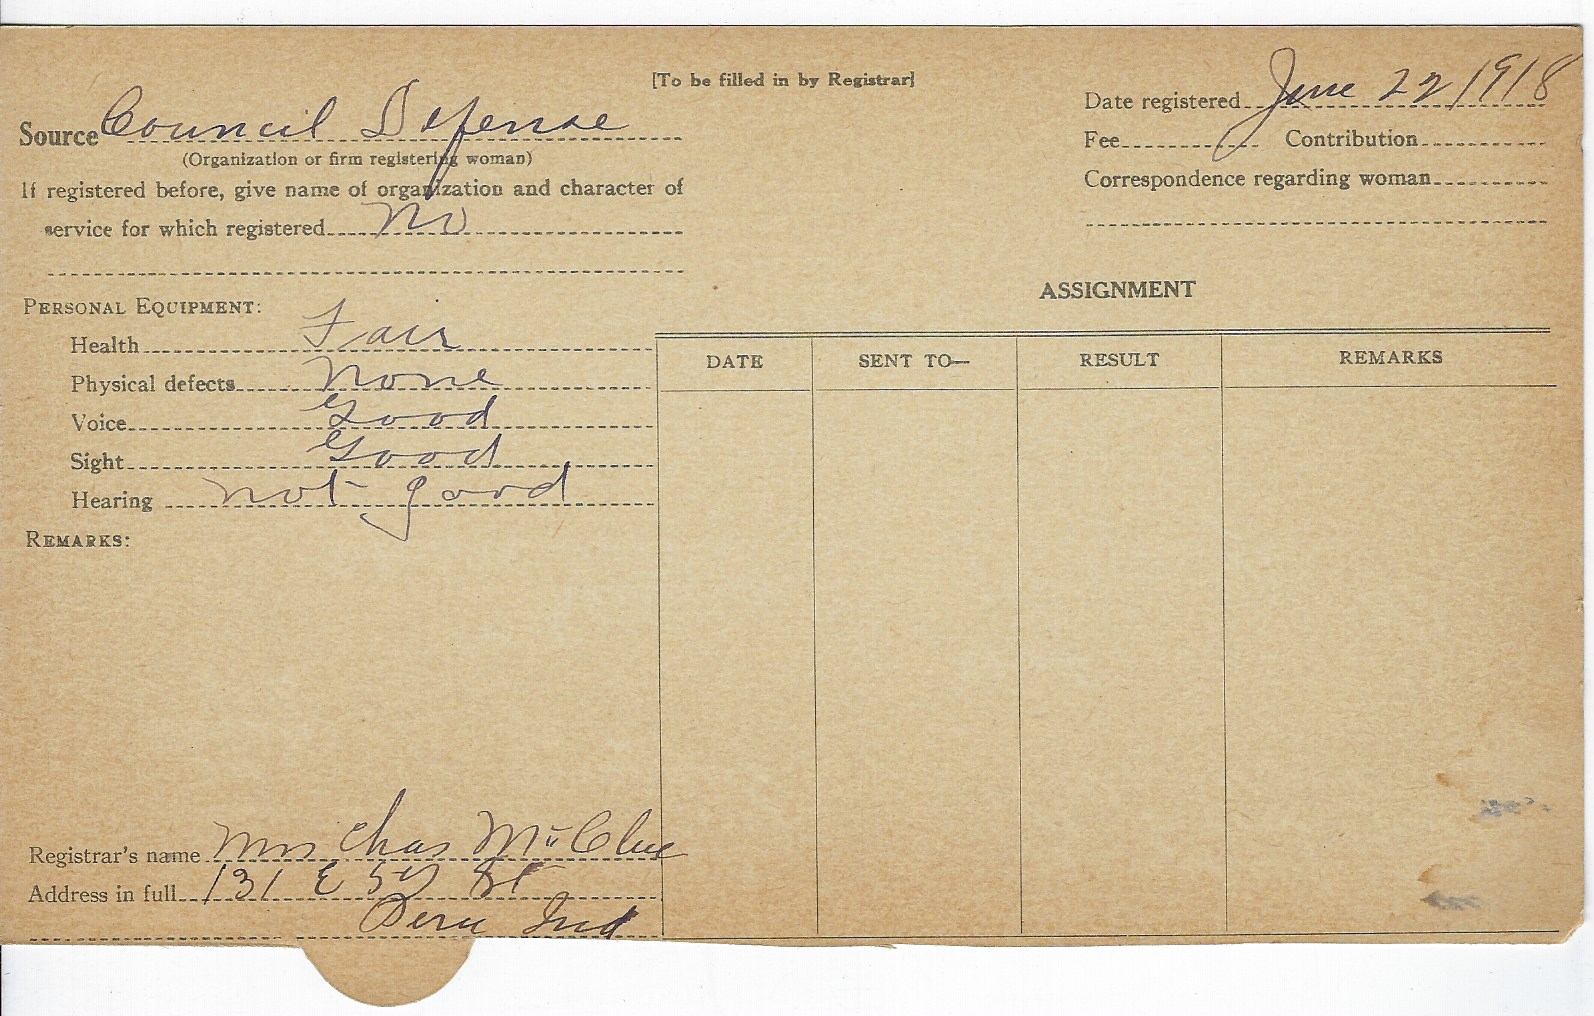 [To be filled in by Registrar]
Source Council Defense
(Organization or firm registering woman)
If registered before, give name of organization and character of
service for which registered No
Date registered June 22 1918
Fee Contribution
Correspondence regarding woman
PERSONAL EQUIPMENT:
Health Fair
Physical defects None
Voice Good
Sight Good
Hearing not good
REMARKS:
ASSIGNMENT
DATE SENT TO— RESULT REMARKS
Registrar's name Mrs Chas McClue
Address in full 131 E 5th St
Peru Ind